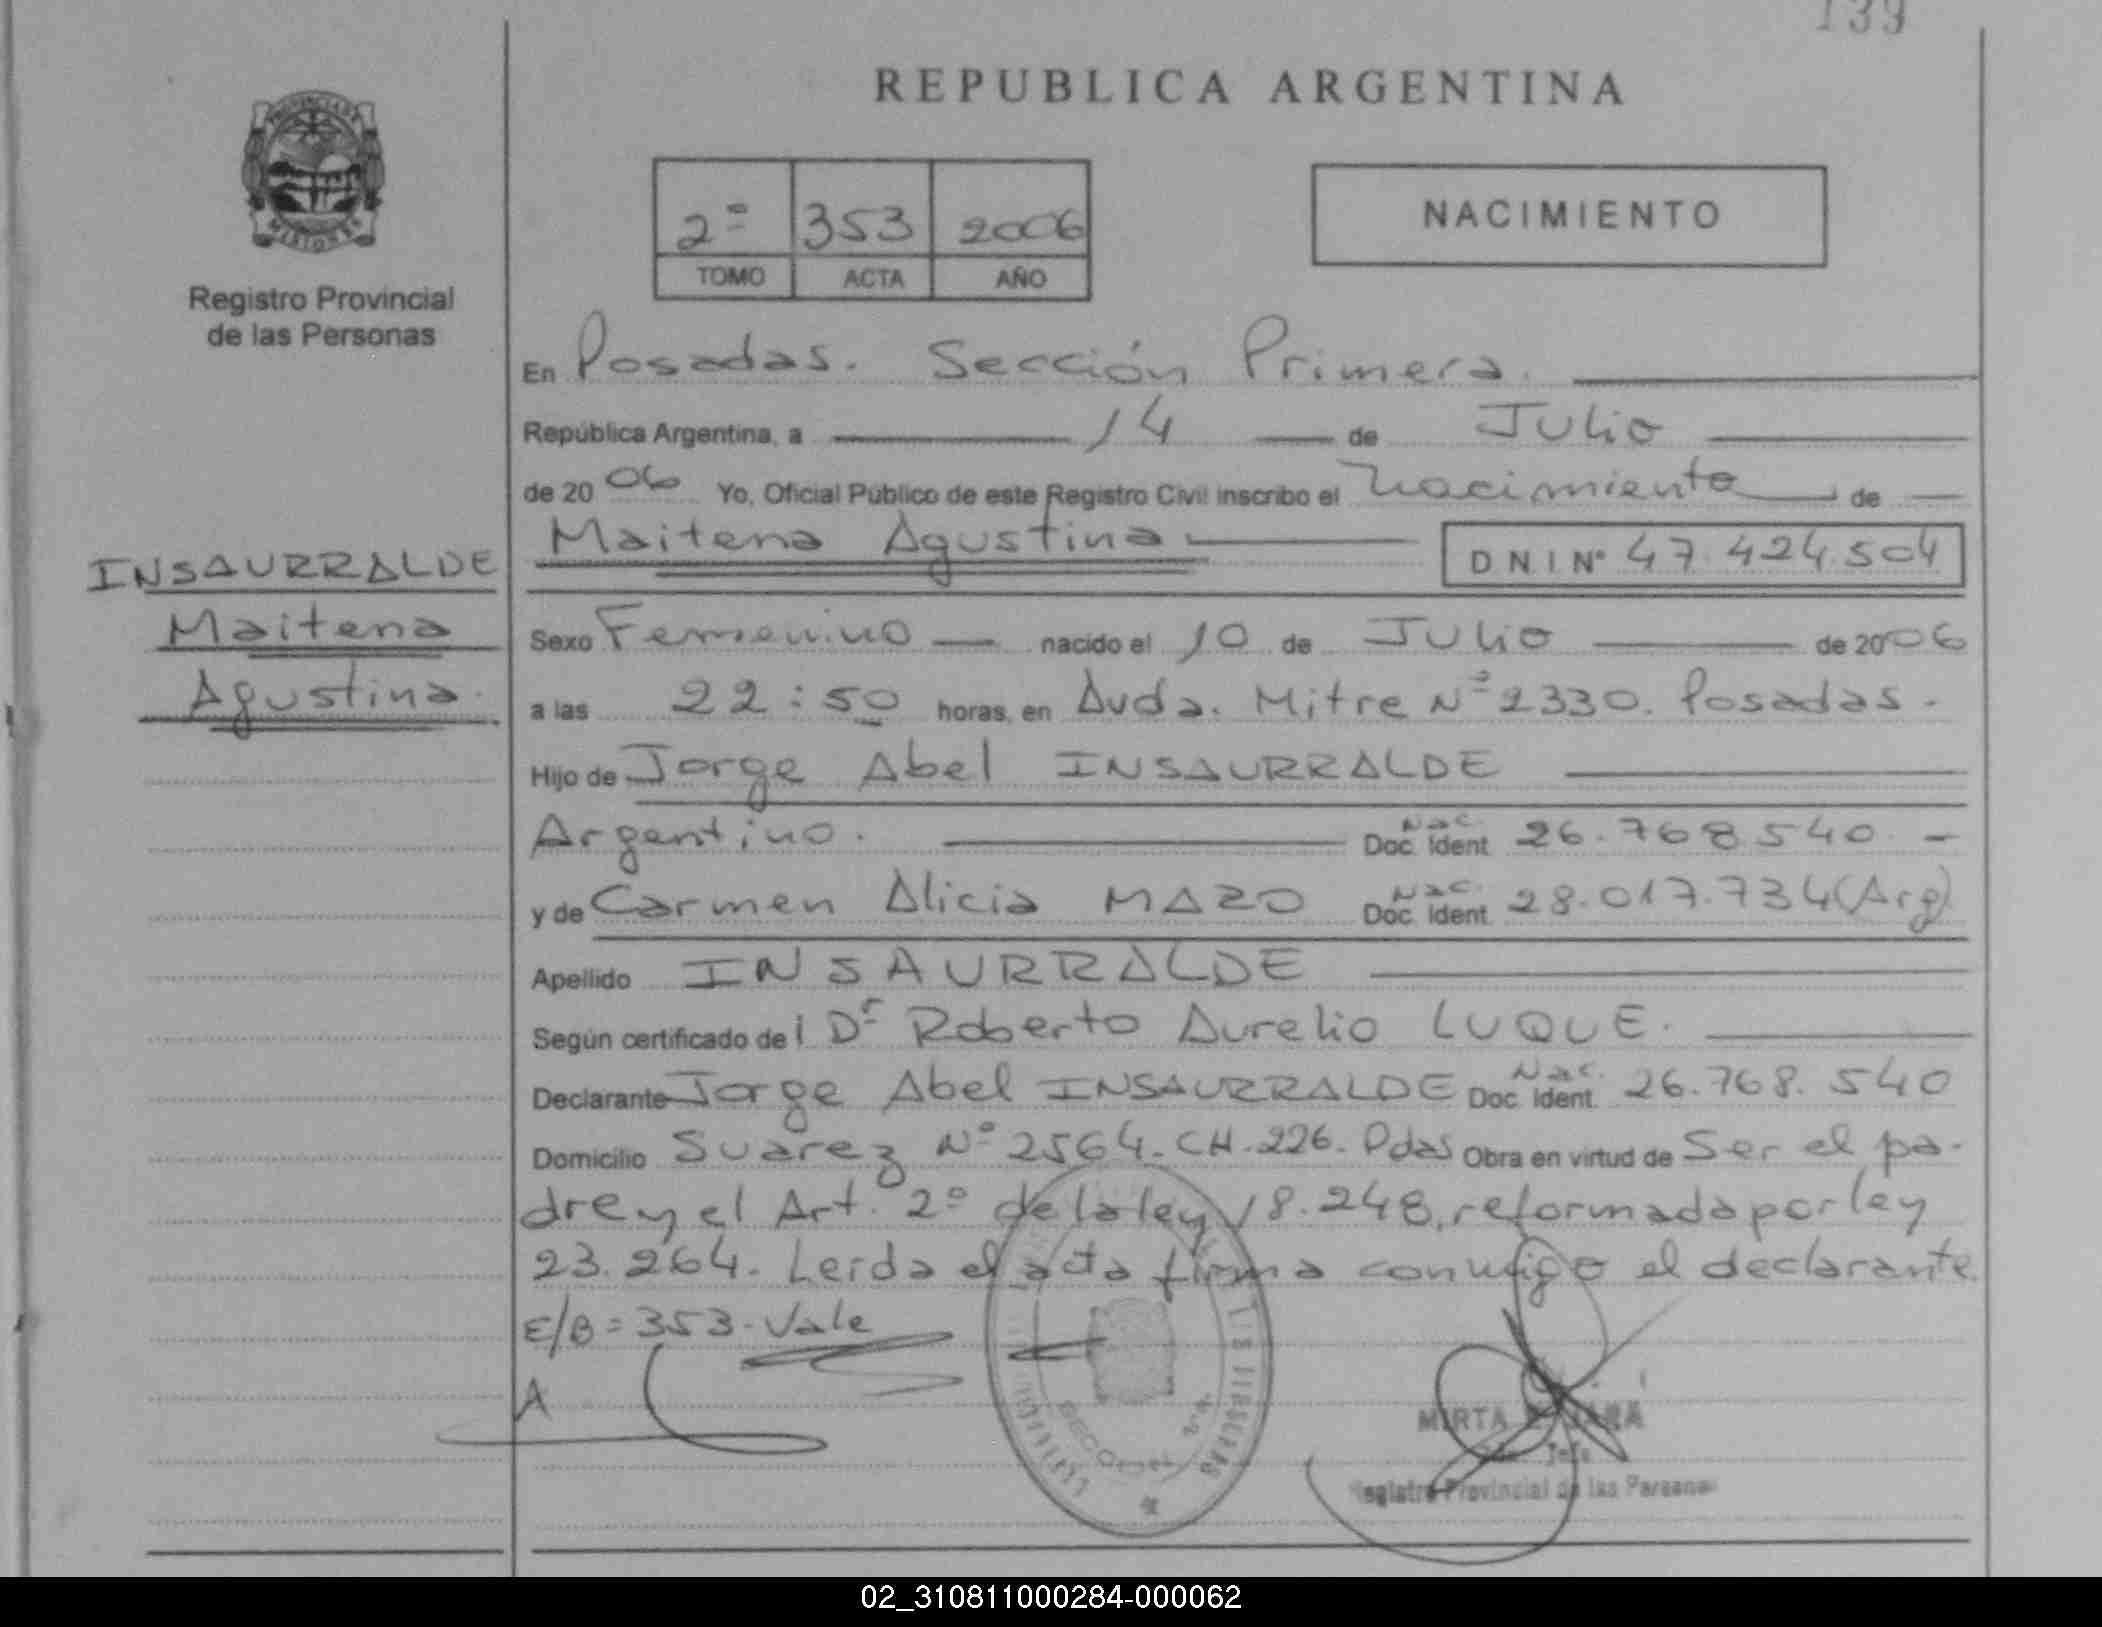 139
REPUBLICA ARGENTINA
PROVINCIA DE
MISIONES
Registro Provincial
de las Personas
2º 353 2006
TOMO ACTA AÑO
NACIMIENTO
En Posadas. Sección Primera.
República Argentina, a 14 de Julio
de 2006 Yo, Oficial Público de este Registro Civil inscribo el Nacimiento de
Maitena Agustina
D N I Nº 47.424.504
INSAURRALDE
Maitena
Agustina.
Sexo Femenino nacido el 10 de Julio de 2006
a las 22:50 horas, en Avda. Mitre Nº 2330. Posadas.
Hijo de Jorge Abel INSAURRALDE
Argentino. Nac. Doc. Ident. 26.768.540.
y de Carmen Alicia MAZO Nac. Doc. Ident. 28.017.734 (Arg)
Apellido INSAURRALDE
Según certificado del Dr Roberto Aurelio LUQUE.
Declarante Jorge Abel INSAURRALDE Nac. Doc. Ident. 26.768.540
Domicilio Suarez Nº 2564. CH. 226. Pdas Obra en virtud de Ser el pa-
dre y el Art. 2º de la ley 18.248, reformada por ley
23.264. Leida el acta firma conmigo el declarante.
E/B = 353 - Vale
MIRTA
Jefe
Registro Provincial de las Personas
02_310811000284-000062